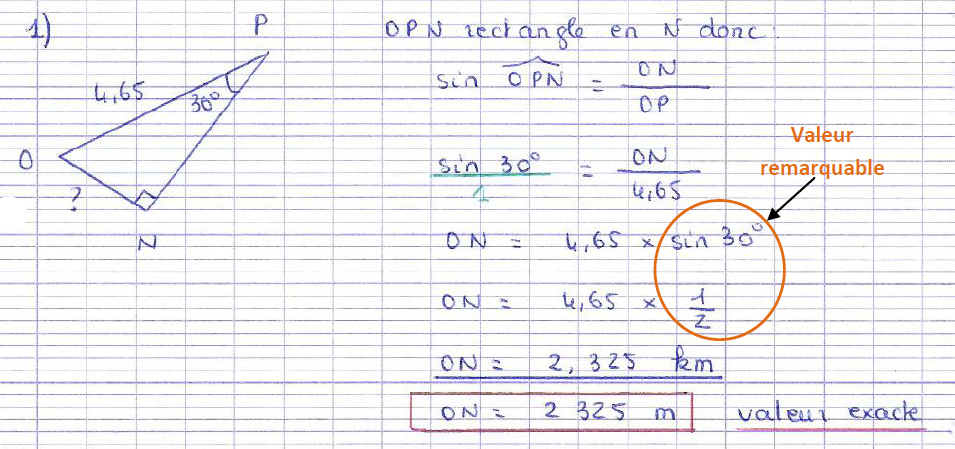 1)
P
4,65
30°
O
?
N
OPN rectangle en N donc :
sin OPN = ON / OP
sin 30° / 1 = ON / 4,65
Valeur
remarquable
ON = 4,65 × sin 30°
ON = 4,65 × 1/2
ON = 2,325 km
ON = 2 325 m valeur exacte